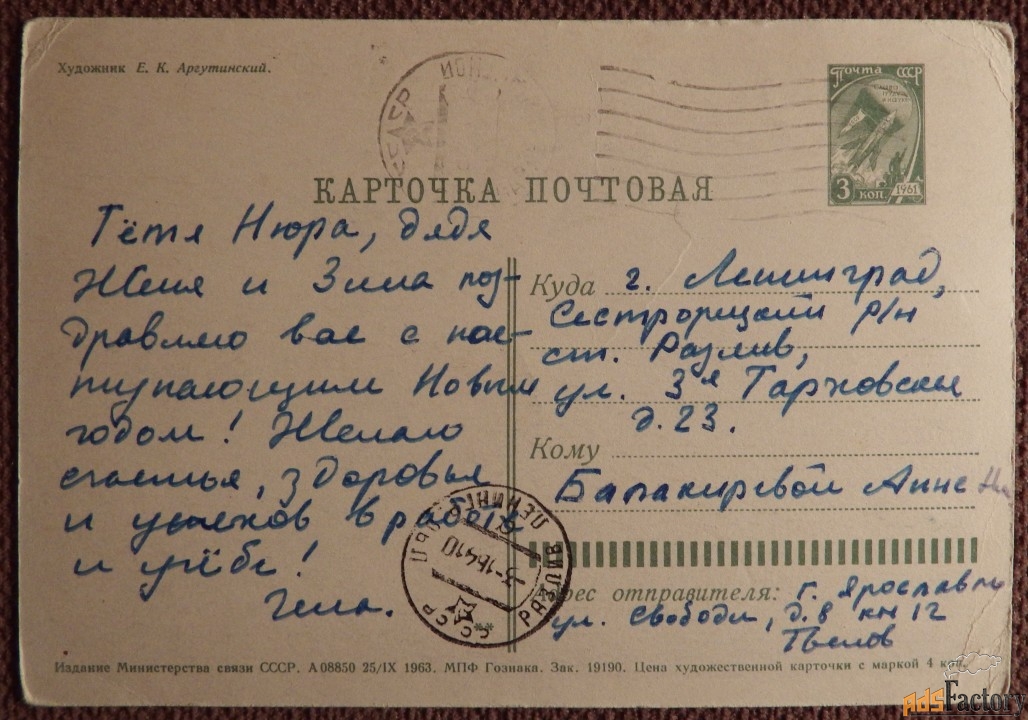 Художник Е. К. Аргутинский.
Почта СССР
3 коп.
1961
СССР
КАРТОЧКА ПОЧТОВАЯ
Тётя Нюра, дядя
Женя и Зина поз-
дравляю вас с нас-
тупающим Новым
годом! Желаю
счастья, здоровья
и успехов в работе
и учёбе!
Гена.
Куда г. Ленинград,
Сестрорецкий р/н
ст. Разлив,
ул. 3я Тарховская
д. 23.
Кому
Балакиревой Анне
РАЗЛИВ ЛЕНИНГР
СССР
-3-16410
Адрес отправителя: г. Ярославль
ул. Свободы, д. 8 кв 12
Издание Министерства связи СССР. А 08850 25/IX 1963. МПФ Гознака. Зак. 19190. Цена художественной карточки с маркой 4 коп.
AdsFactory